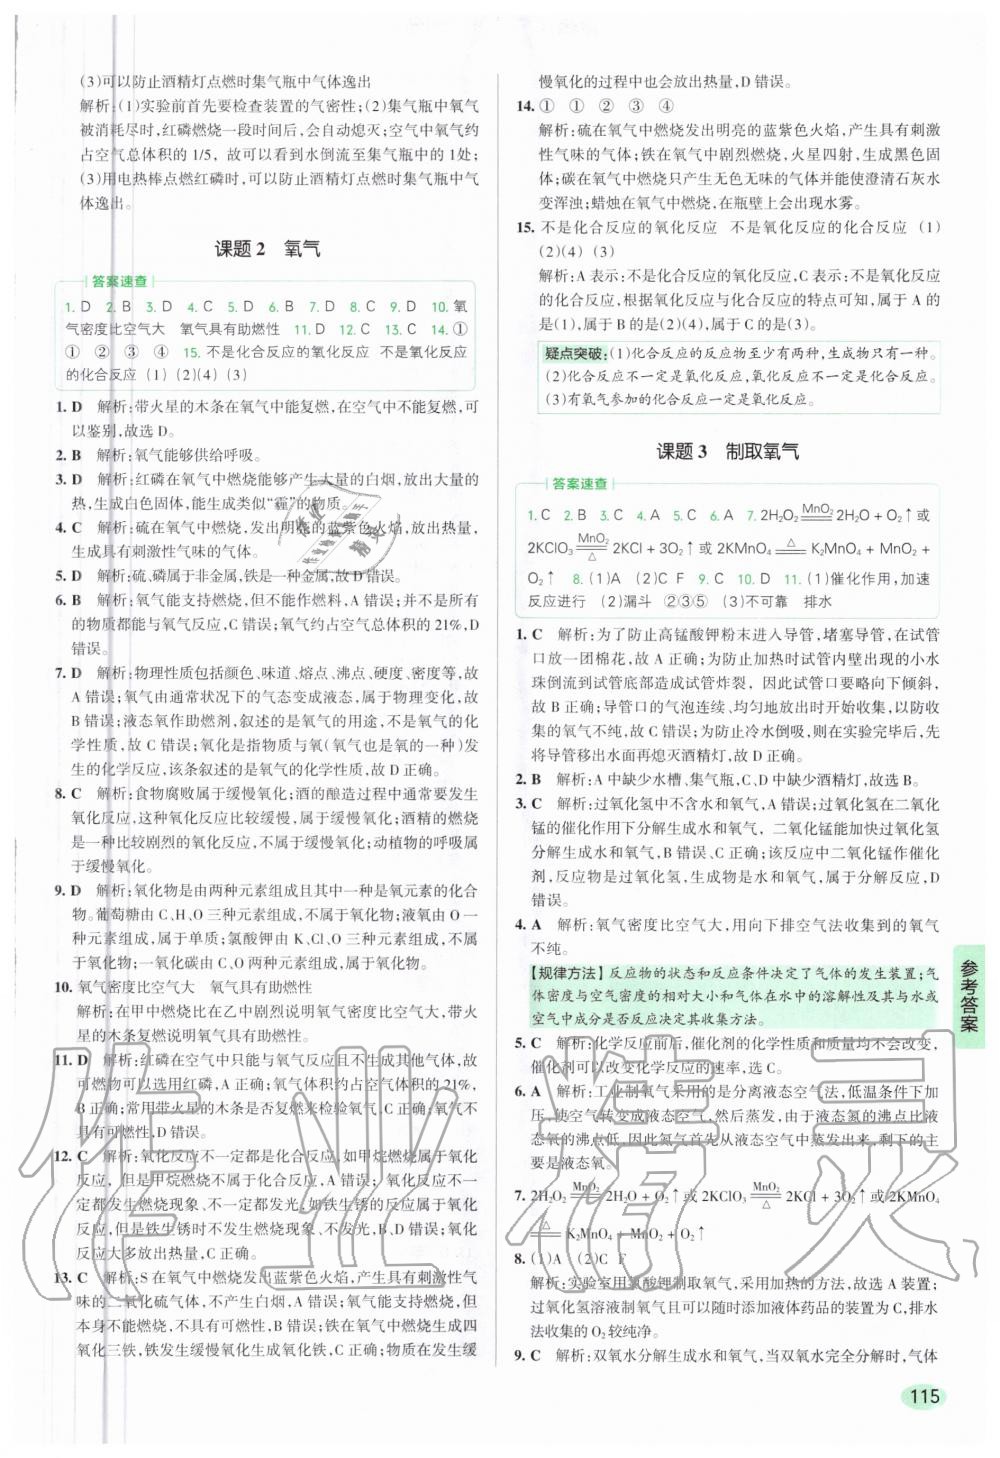 (3)可以防止酒精灯点燃时集气瓶中气体逸出
解析:(1)实验前首先要检查装置的气密性;(2)集气瓶中氧气
被消耗尽时,红磷燃烧一段时间后,会自动熄灭;空气中氧气约
占空气总体积的 1/5，故可以看到水倒流至集气瓶中的 1处;
(3)用电热棒点燃红磷时,可以防止酒精灯点燃时集气瓶中气
体逸出。
课题 2 氧气
答案速查
1. D 2. B 3. D 4. C 5. D 6. B 7. D 8. C 9. D 10. 氧
气密度比空气大 氧气具有助燃性 11. D 12. C 13. C 14. ①
① ② ③ ④ 15. 不是化合反应的氧化反应 不是氧化反应
的化合反应 (1) (2)(4) (3)
1. D 解析:带火星的木条在氧气中能复燃,在空气中不能复燃,可
以鉴别,故选 D。
2. B 解析:氧气能够供给呼吸。
3. D 解析:红磷在氧气中燃烧能够产生大量的白烟,使瓶内温度变
热,生成白色固体,能生成类似“霾”的物质。
4. C 解析:硫在氧气中燃烧,发出明亮的蓝紫色火焰,放出热量,
生成具有刺激性气味的气体。
5. D 解析:硫、磷属于非金属,铁是一种金属,故 D 错误。
6. B 解析:氧气能支持燃烧,但不能作燃料,A 错误;并不是所有
的物质都能与氧气反应,C 错误;氧气约占空气总体积的 21%,D
错误。
7. D 解析:物理性质包括颜色、味道、熔点、沸点、硬度、密度等,故
A 错误;氧气由通常状况下的气态变成液态,属于物理变化,故
B 错误;液态氧作助燃剂,叙述的是氧气的用途,不是氧气的化
学性质,故 C 错误;氧化是指物质与氧(氧气也是氧的一种)发
生的化学反应,该条叙述的是氧气的化学性质,故 D 正确。
8. C 解析:食物腐败属于缓慢氧化;酒的酿造过程中通常要发生
氧化反应,这种氧化反应比较缓慢,属于缓慢氧化;酒精的燃烧
是一种比较剧烈的氧化反应,不属于缓慢氧化;动植物的呼吸属
于缓慢氧化。
9. D 解析:氧化物是由两种元素组成且其中一种是氧元素的化合
物。葡萄糖由 C、H、O 三种元素组成,不属于氧化物;液氧由 O 一
种元素组成,属于单质;氯酸钾由 K、Cl、O 三种元素组成,不属于
氧化物;二氧化碳由 C、O 两种元素组成,属于氧化物。
10. 氧气密度比空气大 氧气具有助燃性
解析:木条在甲中燃烧比在乙中剧烈说明氧气密度比空气大,带火
星的木条复燃说明氧气具有助燃性。
11. D 解析:红磷在空气中只能与氧气反应且不生成其他气体,故
可燃物可以选用红磷,A 正确;氧气体积约占空气体积的 21%,
B 正确;常用带火星的木条是否复燃来检验氧气,C 正确;氧气不
具有可燃性,D 错误。
12. C 解析:氧化反应不一定都是化合反应,如甲烷燃烧属于氧化
反应，但是甲烷燃烧不属于化合反应,A 错误；氧化反应不一
定都发生燃烧现象、不一定都发光,如铁生锈的反应属于氧化
反应,但是铁生锈时不发生燃烧现象、不发光,B、D 错误;氧化
反应大多放出热量,C 正确。
13. C 解析:S 在氧气中燃烧发出蓝紫色火焰,产生具有刺激性气
味的二氧化硫气体,不产生白烟,A 错误;氧气能支持燃烧,但
本身不能燃烧,不具有可燃性,B 错误;铁在氧气中燃烧生成四
氧化三铁,铁发生缓慢氧化生成氧化铁,C 正确;物质在发生缓
慢氧化的过程中也会放出热量,D 错误。
14. ① ① ② ③ ④
解析:硫在氧气中燃烧发出明亮的蓝紫色火焰,产生具有刺激
性气味的气体;铁在氧气中剧烈燃烧,火星四射,生成黑色固
体;碳在氧气中燃烧只产生无色无味的气体并能使澄清石灰水
变浑浊;蜡烛在氧气中燃烧,在瓶壁上会出现水雾。
15. 不是化合反应的氧化反应 不是氧化反应的化合反应 (1)
(2)(4) (3)
解析:A 表示:不是化合反应的氧化反应,C 表示:不是氧化反应
的化合反应,根据氧化反应与化合反应的特点可知,属于 A 的
是(1),属于 B 的是(2)(4),属于 C 的是(3)。
疑点突破:(1)化合反应的反应物至少有两种,生成物只有一种。
(2)化合反应不一定是氧化反应,氧化反应不一定是化合反应。
(3)有氧气参加的化合反应一定是氧化反应。
课题 3 制取氧气
答案速查
1. C 2. B 3. C 4. A 5. C 6. A 7. 2H₂O₂ =MnO₂= 2H₂O + O₂↑或
2KClO₃ =MnO₂/△= 2KCl + 3O₂↑或 2KMnO₄ =△= K₂MnO₄ + MnO₂ +
O₂↑ 8. (1)A (2)C F 9. C 10. D 11. (1)催化作用,加速
反应进行 (2)漏斗 ②③⑤ (3)不可靠 排水
1. C 解析:为了防止高锰酸钾粉末进入导管,堵塞导管,在试管
口放一团棉花,故 A 正确;为防止加热时试管内壁出现的小水
珠倒流到试管底部造成试管炸裂，因此试管口要略向下倾斜,
故 B 正确;导管口的气泡连续、均匀地放出时开始收集,以防收
集的氧气不纯,故 C 错误;为防止冷水倒吸,则在实验完毕后,先
将导管移出水面再熄灭酒精灯,故 D 正确。
2. B 解析:A 中缺少水槽、集气瓶,C、D 中缺少酒精灯,故选 B。
3. C 解析:过氧化氢中不含水和氧气,A 错误;过氧化氢在二氧化
锰的催化作用下分解生成水和氧气，二氧化锰能加快过氧化氢
分解生成水和氧气,B 错误、C 正确;该反应中二氧化锰作催化
剂,反应物是过氧化氢,生成物是水和氧气,属于分解反应,D
错误。
4. A 解析:氧气密度比空气大,用向下排空气法收集到的氧气
不纯。
【规律方法】反应物的状态和反应条件决定了气体的发生装置;气
体密度与空气密度的相对大小和气体在水中的溶解性及其与水或
空气中成分是否反应决定其收集方法。
5. C 解析:化学反应前后,催化剂的化学性质和质量均不会改变,
催化剂可以改变化学反应的速率,选 C。
6. A 解析:工业制氧气采用的是分离液态空气法,低温条件下加
压,使空气转变成液态空气,然后蒸发，由于液态氮的沸点比液
态氧的沸点低，因此氮气首先从液态空气中蒸发出来,剩下的主
要是液态氧。
7. 2H₂O₂ =MnO₂= 2H₂O + O₂↑或 2KClO₃ =MnO₂/△= 2KCl + 3O₂↑或 2KMnO₄
=△= K₂MnO₄ + MnO₂ + O₂↑
8. (1)A (2)C F
解析:实验室用氯酸钾制取氧气,采用加热的方法,故选 A 装置;
过氧化氢溶液制氧气且可以随时添加液体药品的装置为 C,排水
法收集的 O₂ 较纯净。
9. C 解析:双氧水分解生成水和氧气,当双氧水完全分解时,气体
参考答案
115
作业精灵